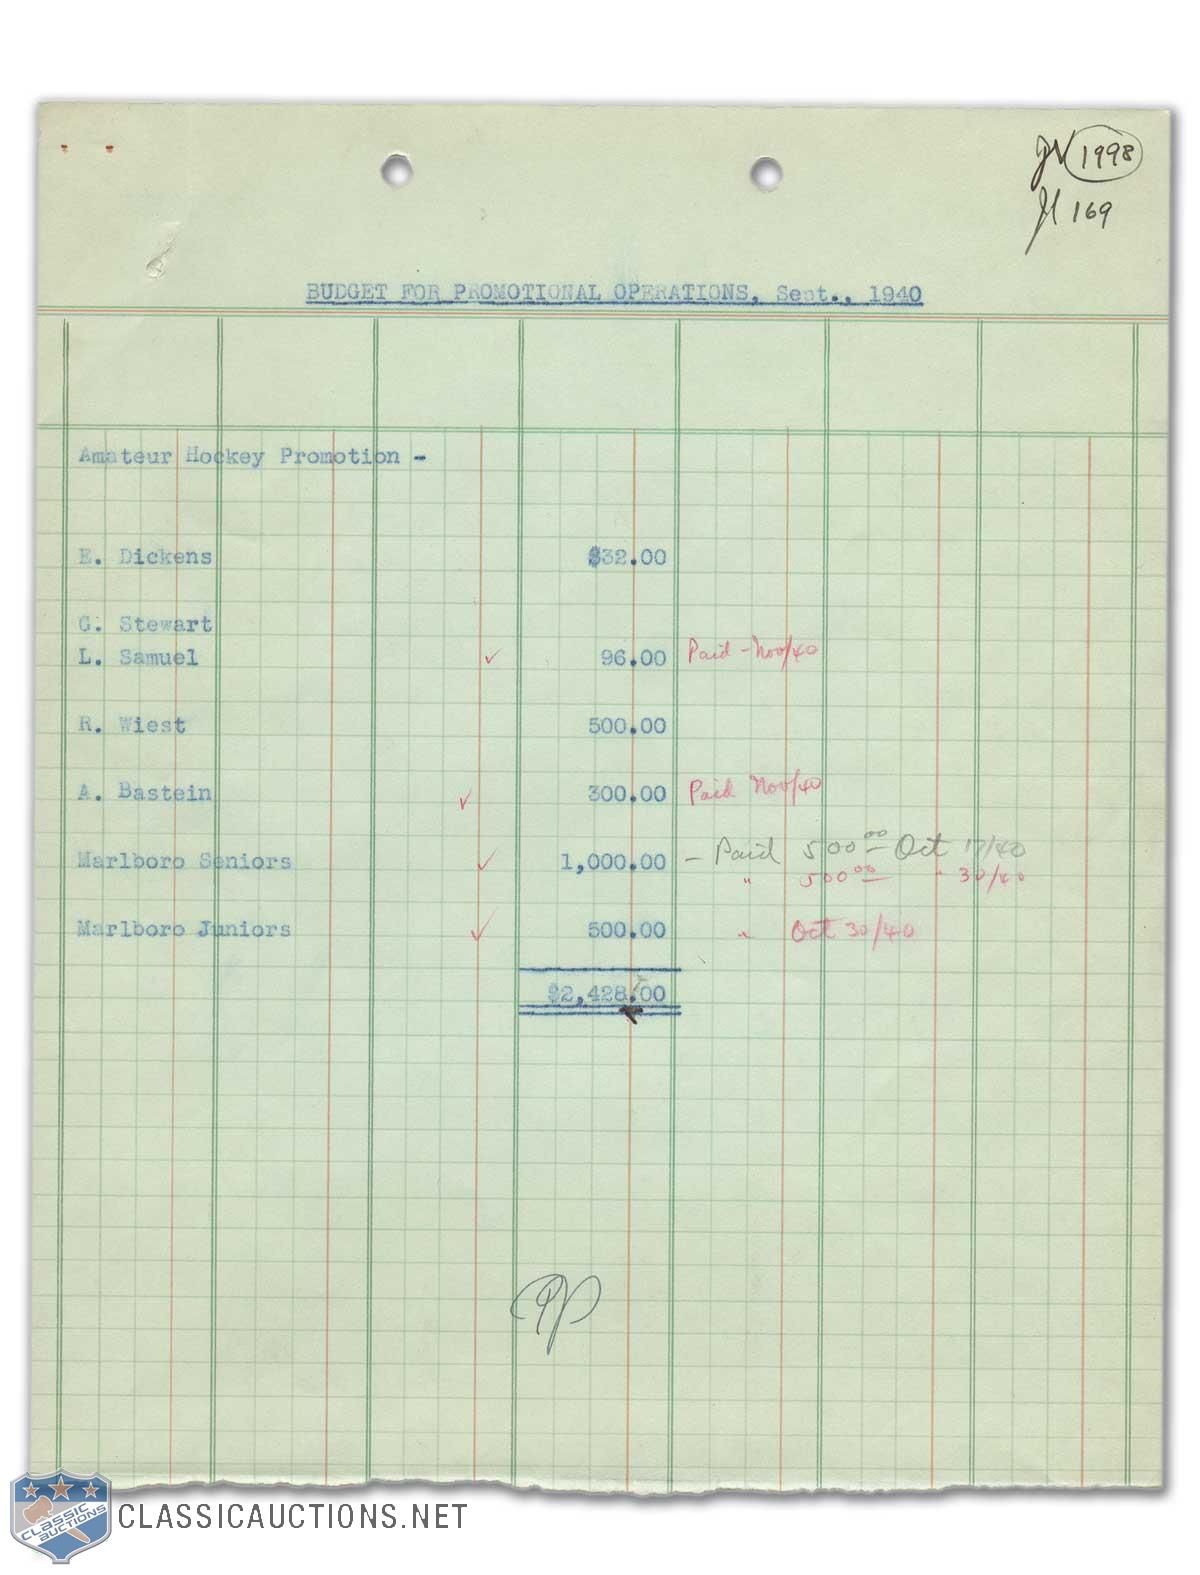 1998
169
BUDGET FOR PROMOTIONAL OPERATIONS, Sept., 1940
Amateur Hockey Promotion -
E. Dickens $32.00
G. Stewart
L. Samuel ✓ 96.00 Paid - Nov/40
R. Wiest 500.00
A. Bastein ✓ 300.00 Paid Nov/40
Marlboro Seniors ✓ 1,000.00 - Paid 500.00 Oct 17/40
" 500.00 " 30/40
Marlboro Juniors ✓ 500.00 " Oct 30/40
$2,428.00
CLASSIC AUCTIONS
CLASSICAUCTIONS.NET